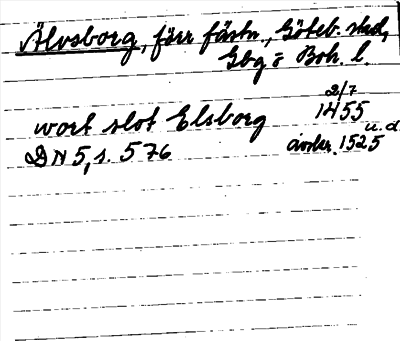 Älvsborg, förr fästn., Göteb. stad,
Gbg o Boh. l.
2/7
wort slot Elsborg 1455
u. d.
DN 5, s. 576 avskr. 1525